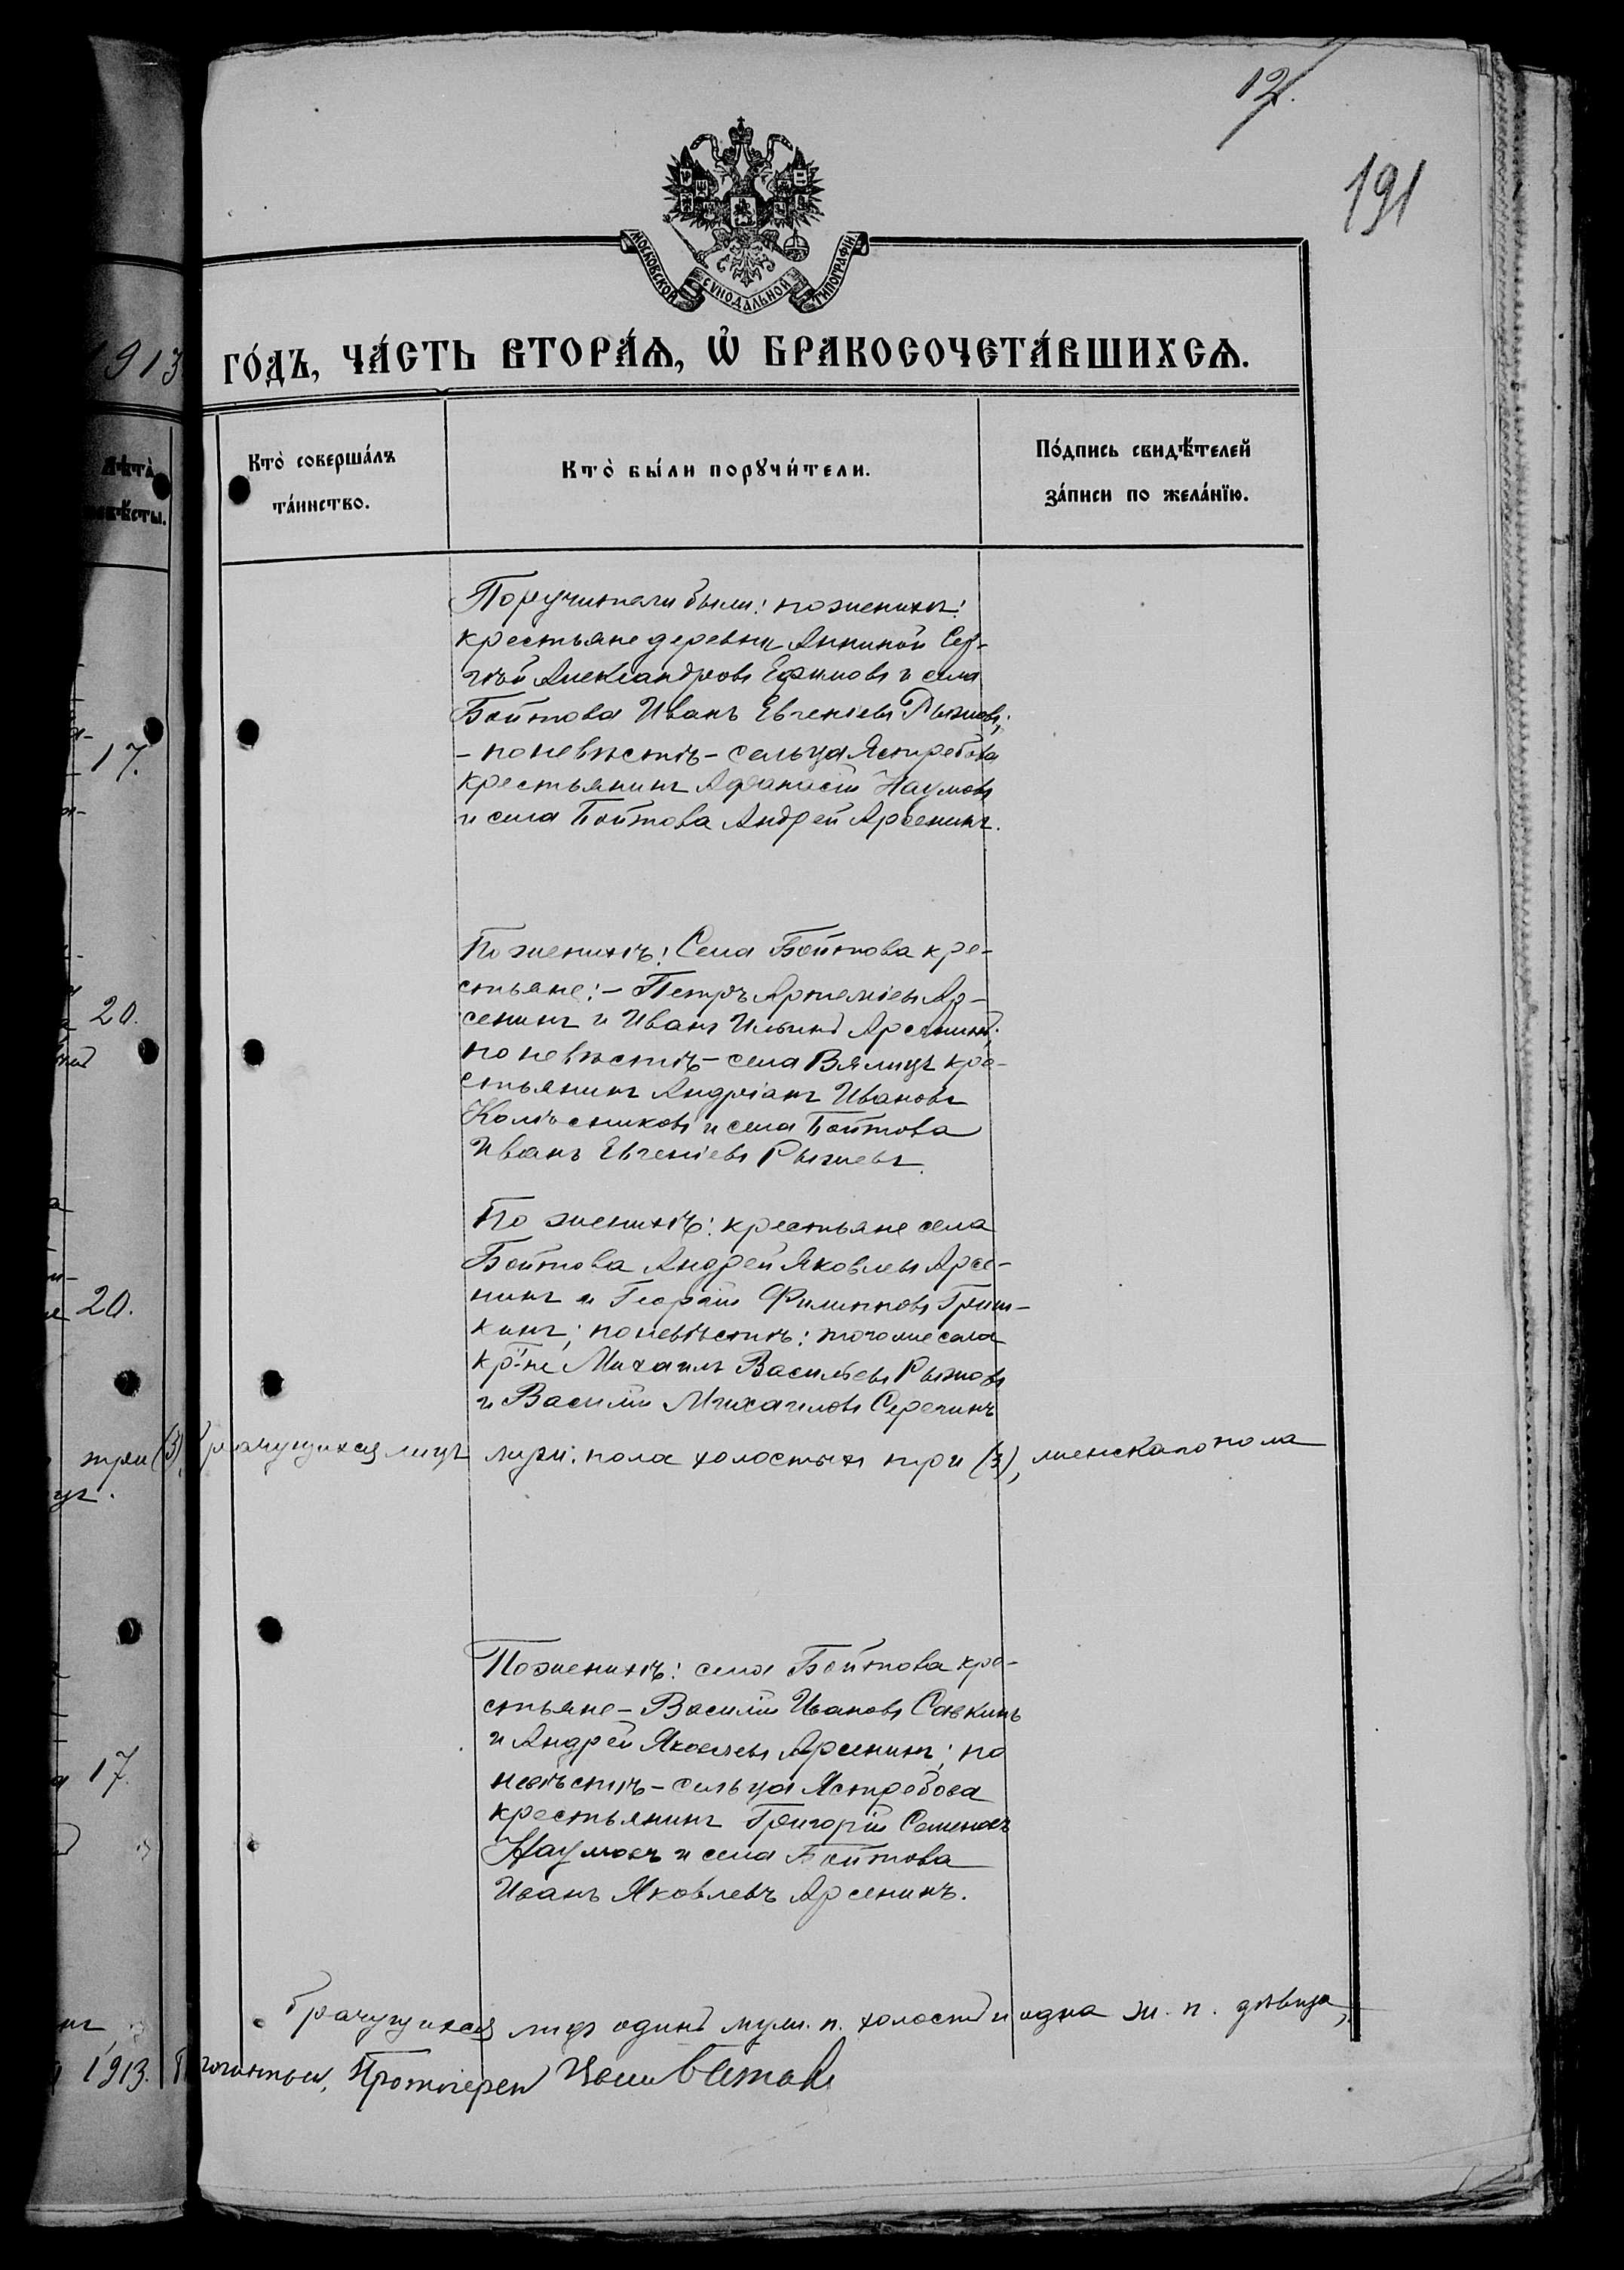 12.
191
МОСКОВСКОЙ СѴНОДАЛЬНОЙ ТИПОГРАФІИ
1913
ГО́ДЪ, ЧА́СТЬ ВТОРА́Ѧ, Ѽ БРАКОСОЧЕТА́ВШИХСѦ.
Лѣта̀
невѣ́сты.
Кто̀ соверша́лъ
та́инство.
Кто̀ бы́ли порꙋчи́тели.
По́дпись свидѣ́телей
за́писи по жела́нїю.
Поручители были: по женихѣ:
крестьяне деревни Анниной Сер-
гѣй Александровъ Ефимовъ и села
Бойтова Иванъ Евгеніевъ Рыжовъ;
17.
- по невѣстѣ - сельца Ястребова
крестьянинъ Афанасій Наумовъ
и села Бойтова Андрей Арсенинъ.
По женихѣ: Села Бойтова кре-
стьяне: - Петръ Артеміевъ Ар-
20.
сенинъ и Иванъ Ильинъ Арсенинъ;
по невѣстѣ - села Вялицъ кре-
стьянинъ Андріанъ Ивановъ
Колѣсниковъ и села Бойтова
Иванъ Евгеніевъ Рыжевъ.
По женихѣ: крестьяне села
Бойтова Андрей Яковлевъ Арсе-
20.
нинъ и Георгій Филипповъ Гриш-
кинъ; по невѣстѣ: того же села
кр-не Михаилъ Васильевъ Рыжовъ
и Василій Михаиловъ Серегинъ
три (3), брачущихся лицъ муж. пола холостыхъ три (3), женскаго пола
По женихѣ: села Бойтова кре-
стьяне - Василій Ивановъ Савкинъ
и Андрей Яковлевъ Арсенинъ; по
17.
невѣстѣ - сельца Ястребова
крестьянинъ Григорій Семеновъ
Наумовъ и села Бойтова
Иванъ Яковлевъ Арсенинъ.
брачущихся лицъ одинъ муж. п. холостъ и одна ж. п. дѣвица,
1913. Протоіерей